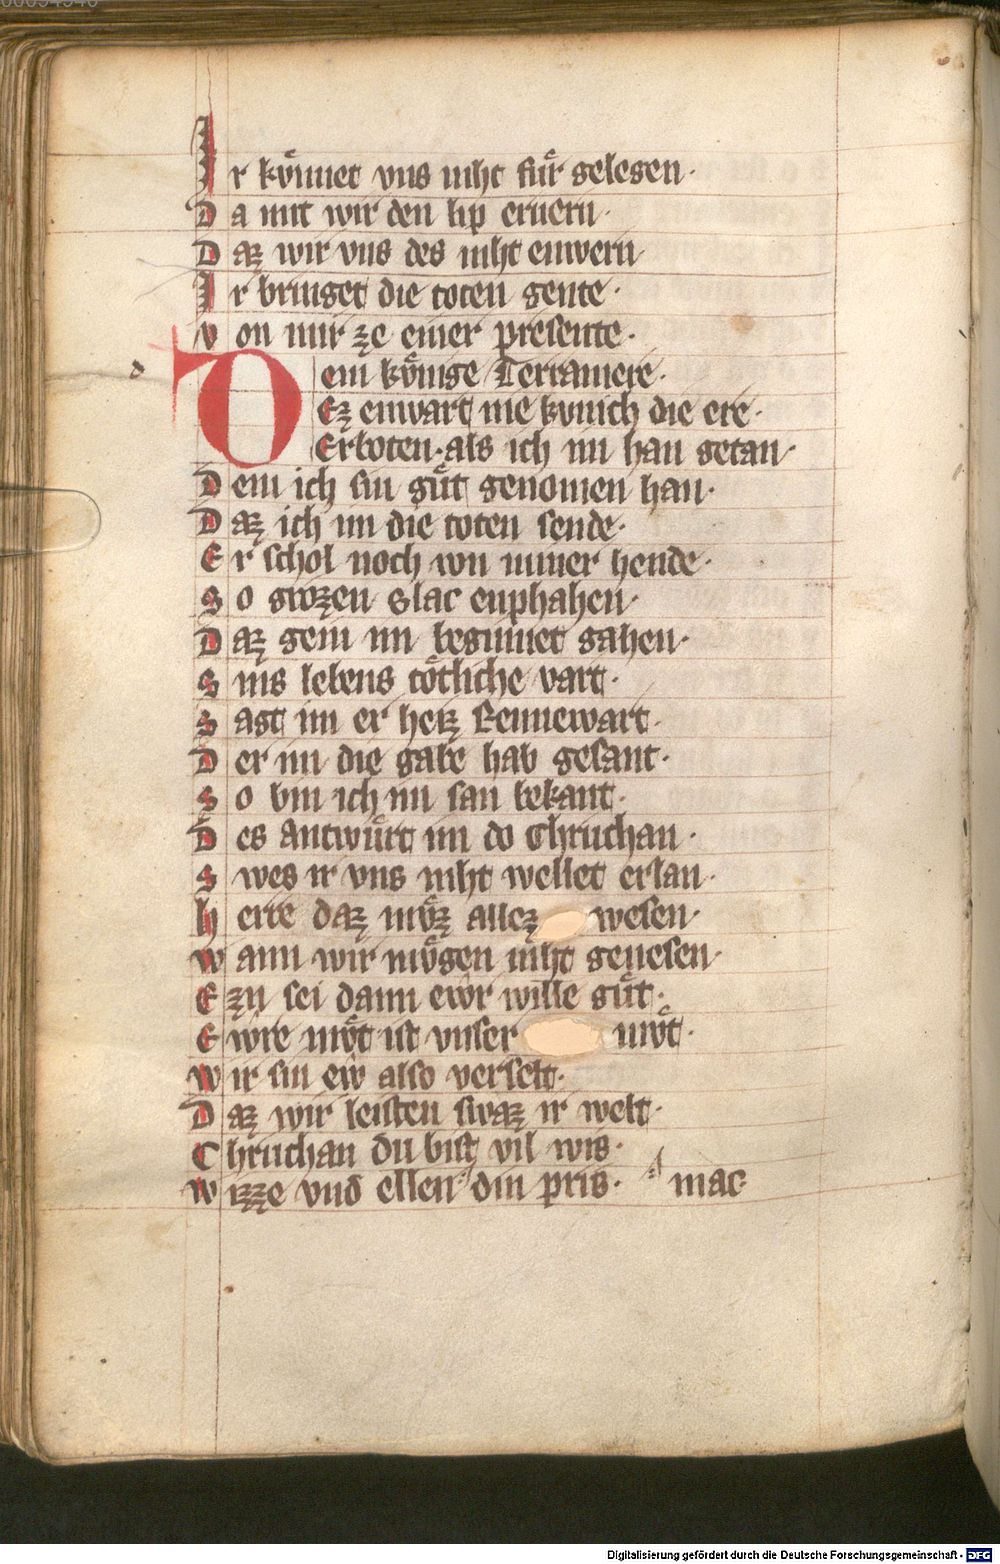 Ir kuͦnnet vns niht fuͤr gelegen·
Da mit wir den lip ernern·
Daz wir vns des niht enwern
Ir bringet die toten gente·
von mir ze einer presente·
d
Dem kuͦnige Terramere·
Ez enwart nie kunich die ere·
Erboten·als ich im han getan·
Dem ich sin guͦt genomen han·
Daz ich im die toten sende·
Er schol noch von miner hende·
So grozen slac enphahen·
Daz gem im beginnet gahen·
Sins lebens toͤtliche vart·
Sagt im er heiz Rennewart·
Der im die gabe hab gesant·
So bin ich im san bekant·
Des antwuͤrt im do Chruchan·
Swes ir vns niht wellet erlan·
herre daz muͦz allez wesen·
wann wir muͦgen niht genesen·
Ezn sei dann ewr wille guͦt·
Ewre muͦt ist vnser muͦt·
wir sin ew also verselt·
Daz wir leisten swaz ir welt·
Chruchan du bist vil wis·
wizze vnd ellen din pris· mac
Digitalisierung gefördert durch die Deutsche Forschungsgemeinschaft - DFG